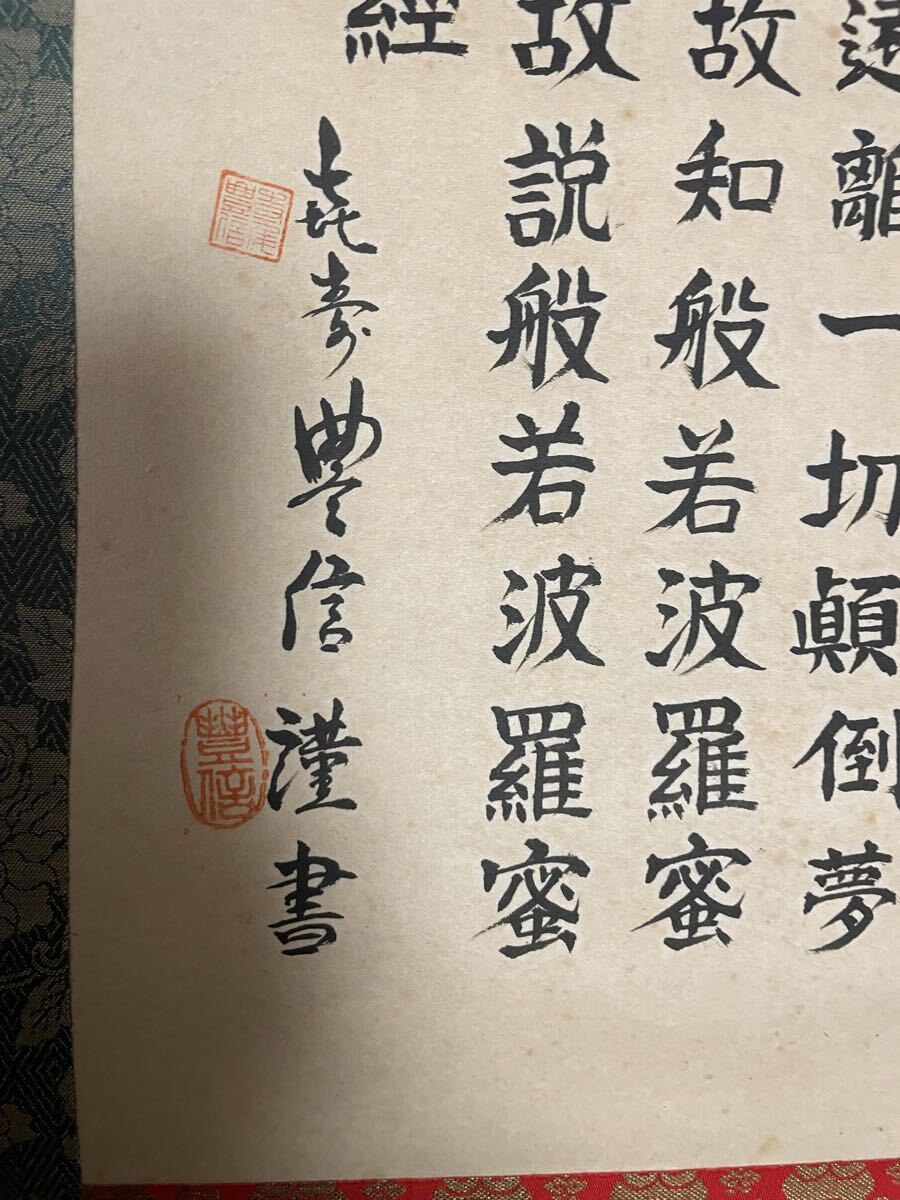 遠離一切顛倒夢
故知般若波羅蜜
故説般若波羅蜜
經
喜寿豊信謹書
豊信